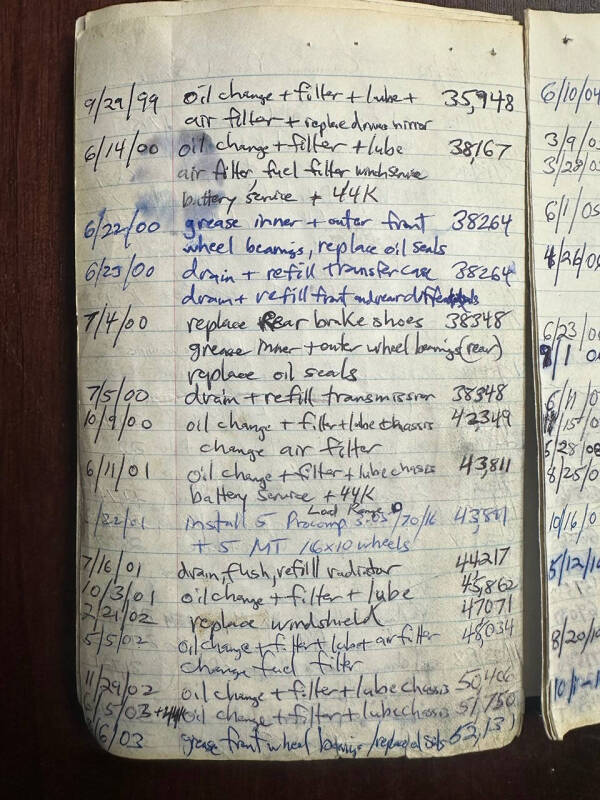 9/29/99 oil change + filter + lube + 35,948
air filter + replace drivers mirror
6/14/00 oil change + filter + lube 38,167
air filter fuel filter winch service
battery service + 44K
6/22/00 grease inner + outer front 38264
wheel bearings, replace oil seals
6/23/00 drain + refill transfercase 38264
drain + refill front and rear differentials
7/4/00 replace Rear brake shoes 38348
grease inner + outer wheel bearings (rear)
replace oil seals
7/5/00 drain + refill transmission 38348
10/9/00 oil change + filter + lube chassis 42349
change air filter
6/11/01 oil change + filter + lube chassis 43,811
battery service + 44K
Load Range D
/22/01 install 5 Procomp 3.05/70/16 43,841
+ 5 MT 16x10 wheels
7/16/01 drain, flush, refill radiator 44217
10/3/01 oil change + filter + lube 45,862
2/21/02 replace windshield 47071
5/5/02 oil change + filter + lube + air filter 48,034
change fuel filter
11/29/02 oil change + filter + lube chassis 50,406
6/5/03 + 44K oil change + filter + lube chassis 51,750
/6/03 grease front wheel bearings/replaced seals 52,131
6/10/04
3/9/0
3/28/0
6/1/05
4/26/06
6/23/0
9/1 0
6/11/0
/15/0
5/28/08
8/25/0
10/16/0
5/12/1
8/20/1
10/1-1